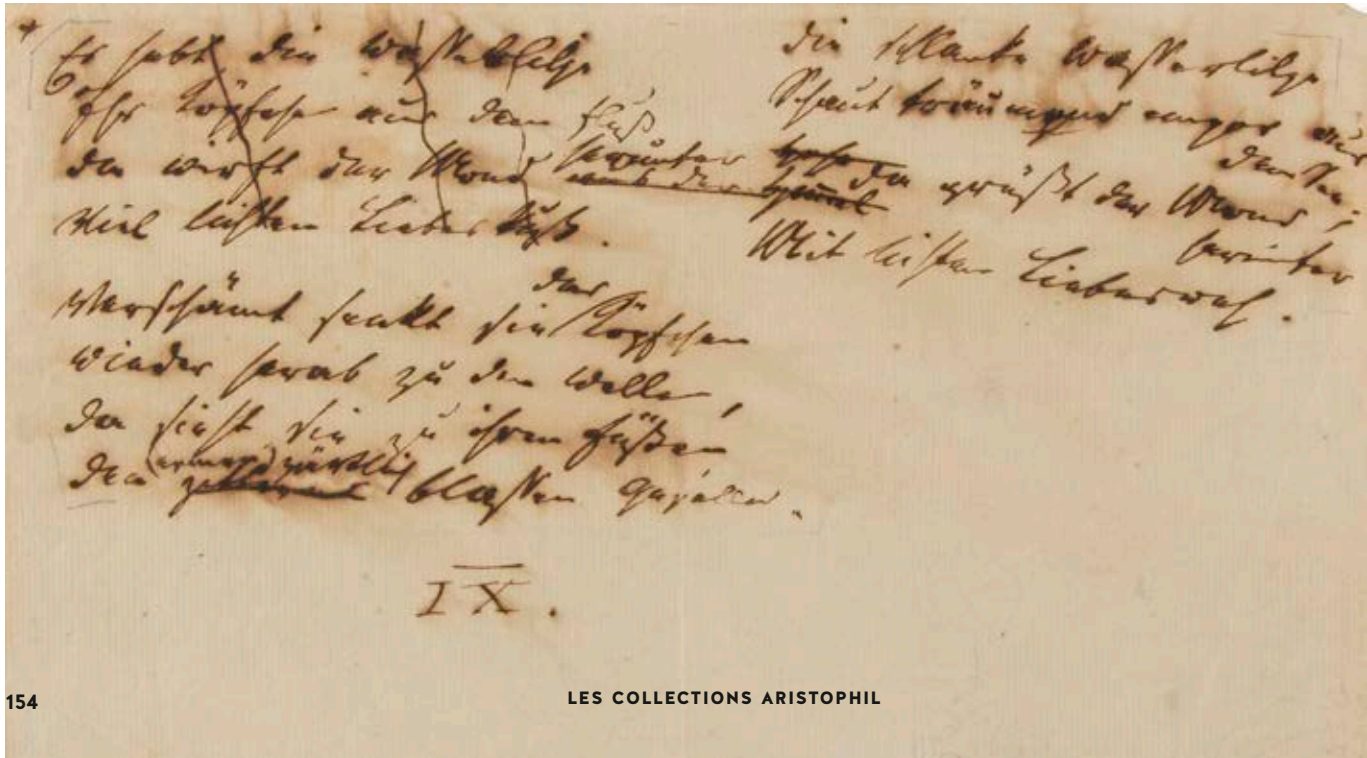 Es hebt die Wasserlilje
Ihr Köpfchen aus dem Fluß
da wirft der Mond herunter
aus der
Viel lichten Liebeskuß.
Verschämt senkt sie das Köpfchen
wieder herab zu den Welle,
da sieht sie zu ihren Füßen
den armen zärtlich blassen Gesellen.
IX.
die schlanke Wasserlilje
Schaut träumend empor aus
dem See;
da grüßt der Mond
herunter
Mit lichten Liebesweh.
154
LES COLLECTIONS ARISTOPHIL